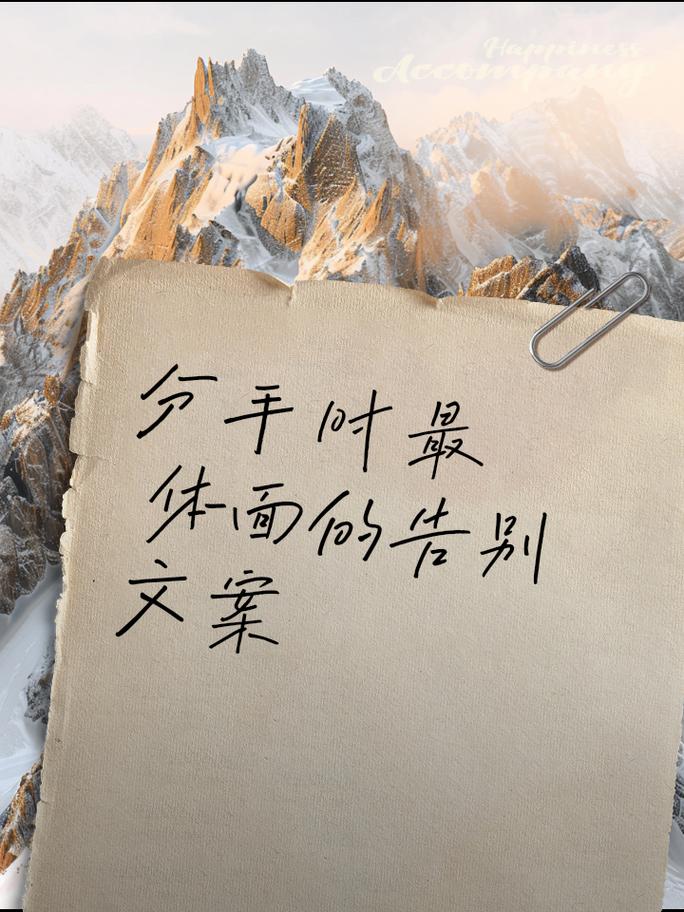 Happiness
Accompany
分手时最
体面的告别
文案